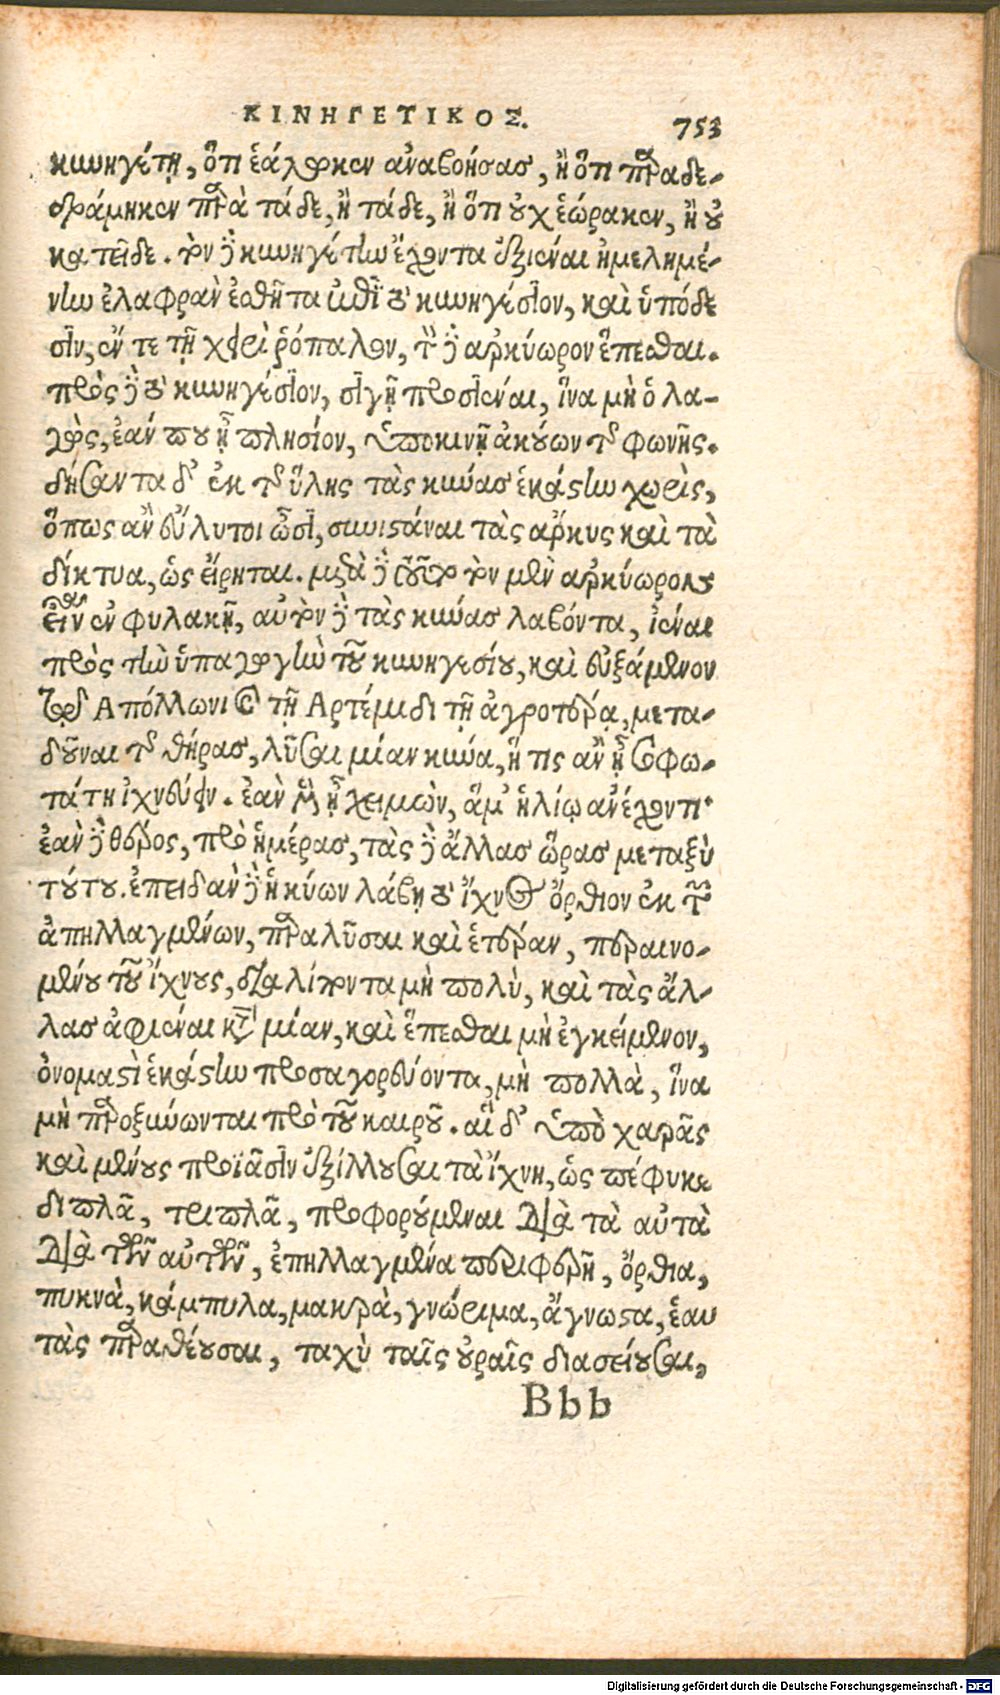 ΚΙΝΗΓΕΤΙΚΟΣ. 753
κυνηγέτῃ, ὅτι ἑάλωκεν ἀναβοήσας, ἢ ὅτι παραδε-
δράμηκεν παρὰ τάδε, ἢ τάδε, ἢ ὅτι οὐχ ἑώρακεν, ἢ οὐ
κατεῖδε. τὸν δὲ κυνηγέτην ἔχοντα ἐξιέναι ἠμελημέ-
νην ἐλαφρὰν ἐσθῆτα ἐπὶ τὸ κυνηγέσιον, καὶ ὑπόδε
σιν, ἔν τε τῇ χειρὶ ῥόπαλον, τὸν δὲ ἀρκύωρον ἕπεσθαι.
πρὸς δὲ τὸ κυνηγέσιον, σιγῇ προσιέναι, ἵνα μὴ ὁ λα-
γὼς, ἐάν που ᾖ πλησίον, ὑποκινῇ ἀκούων τῆς φωνῆς.
δήσαντα δ' ἐκ τῆς ὕλης τὰς κύνας ἑκάστην χωρὶς,
ὅπως ἂν εὔλυτοι ὦσι, συνιστάναι τὰς ἄρκυς καὶ τὰ
δίκτυα, ὡς εἴρηται. μετὰ δὲ τοῦτο τὸν μὲν ἀρκύωρον
εἶναι ἐν φυλακῇ, αὐτὸν δὲ τὰς κύνας λαβόντα, ἰέναι
πρὸς τὴν ὑπαγωγὴν τοῦ κυνηγεσίου, καὶ εὐξάμενον
τῷ Ἀπόλλωνι καὶ τῇ Ἀρτέμιδι τῇ ἀγροτέρᾳ, μετα-
δοῦναι τῆς θήρας, λῦσαι μίαν κύνα, ἥ τις ἂν ᾖ σοφω-
τάτη ἰχνεύειν. ἐὰν μὲν ᾖ χειμὼν, ἅμ' ἡλίῳ ἀνέχοντι·
ἐὰν δὲ θέρος, πρὸ ἡμέρας, τὰς δὲ ἄλλας ὥρας μεταξὺ
τούτου. ἐπειδὰν δὲ ἡ κύων λάβῃ τὸ ἴχνος ὄρθιον ἐκ τῶν
ἀπηλλαγμένων, παραλῦσαι καὶ ἑτέραν, περαινο-
μένου τοῦ ἴχνους, διαλίποντα μὴ πολὺ, καὶ τὰς ἄλ-
λας ἀφιέναι κατὰ μίαν, καὶ ἕπεσθαι μὴ ἐγκείμενον,
ὀνομαστὶ ἑκάστην προσαγορεύοντα, μὴ πολλὰ, ἵνα
μὴ παροξύνωνται πρὸ τοῦ καιροῦ. αἱ δ' ὑπὸ χαρᾶς
καὶ μένους προϊᾶσιν ἐξίλλουσαι τὰ ἴχνη, ὡς πέφυκε
διπλᾶ, τριπλᾶ, προφορούμεναι διὰ τὰ αὐτὰ
διὰ τῶν αὐτῶν, ἐπηλλαγμένα περιφερῆ, ὄρθια,
πυκνὰ, κάμπυλα, μακρὰ, γνώριμα, ἄγνωστα, ἑαυ
τὰς παραθέουσαι, ταχὺ ταῖς οὐραῖς διασείουσαι,
Bbb
Digitalisierung gefördert durch die Deutsche Forschungsgemeinschaft - DFG